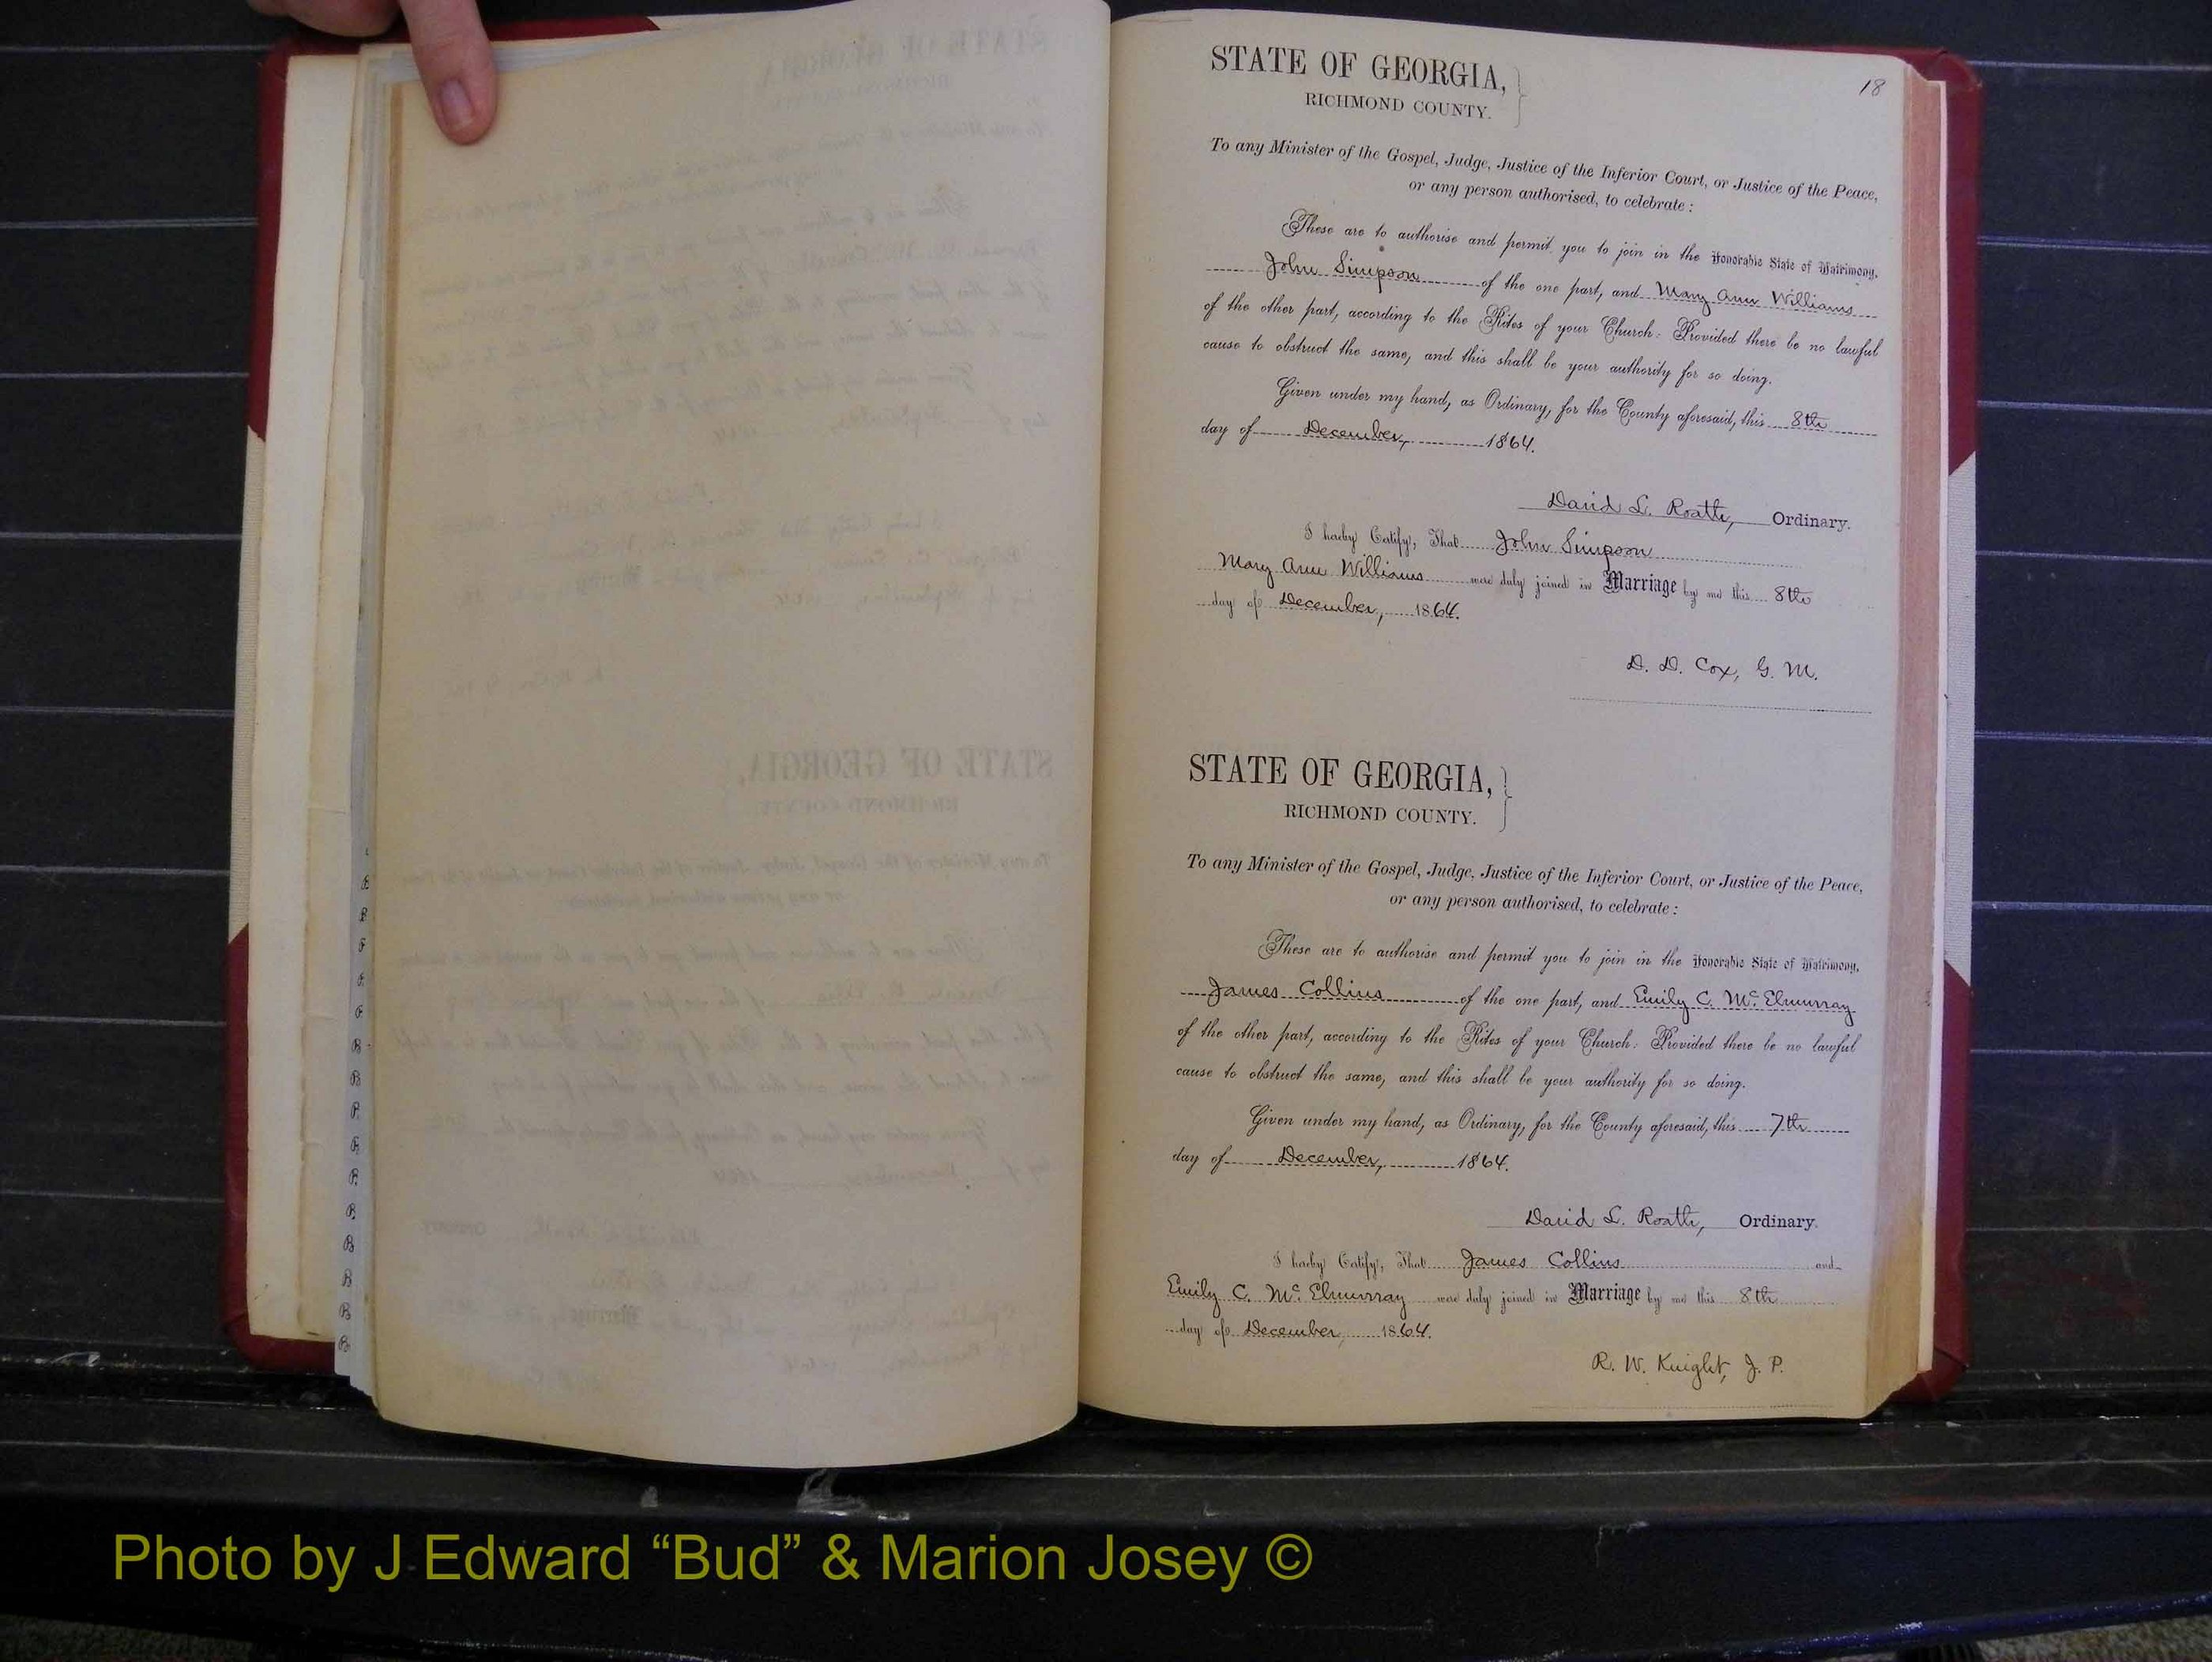 18
STATE OF GEORGIA,
RICHMOND COUNTY.
To any Minister of the Gospel, Judge, Justice of the Inferior Court, or Justice of the Peace,
or any person authorised, to celebrate:
These are to authorise and permit you to join in the Honorable State of Matrimony,
John Simpson of the one part, and Mary Ann Williams
of the other part, according to the Rites of your Church: Provided there be no lawful
cause to obstruct the same, and this shall be your authority for so doing.
Given under my hand, as Ordinary, for the County aforesaid, this 8th
day of December, 1864.
David L. Roath, Ordinary.
I hereby Certify, That John Simpson
Mary Ann Williams were duly joined in Marriage by me this 8th
day of December, 1864.
D. D. Cox, G. M.
STATE OF GEORGIA,
RICHMOND COUNTY.
To any Minister of the Gospel, Judge, Justice of the Inferior Court, or Justice of the Peace,
or any person authorised, to celebrate:
These are to authorise and permit you to join in the Honorable State of Matrimony,
James Collins of the one part, and Emily C. McElmurray
of the other part, according to the Rites of your Church: Provided there be no lawful
cause to obstruct the same, and this shall be your authority for so doing.
Given under my hand, as Ordinary, for the County aforesaid, this 7th
day of December, 1864.
David L. Roath, Ordinary.
I hereby Certify, That James Collins and
Emily C. McElmurray were duly joined in Marriage by me this 8th
day of December, 1864.
R. W. Knight, J. P.
Photo by J Edward “Bud” & Marion Josey ©